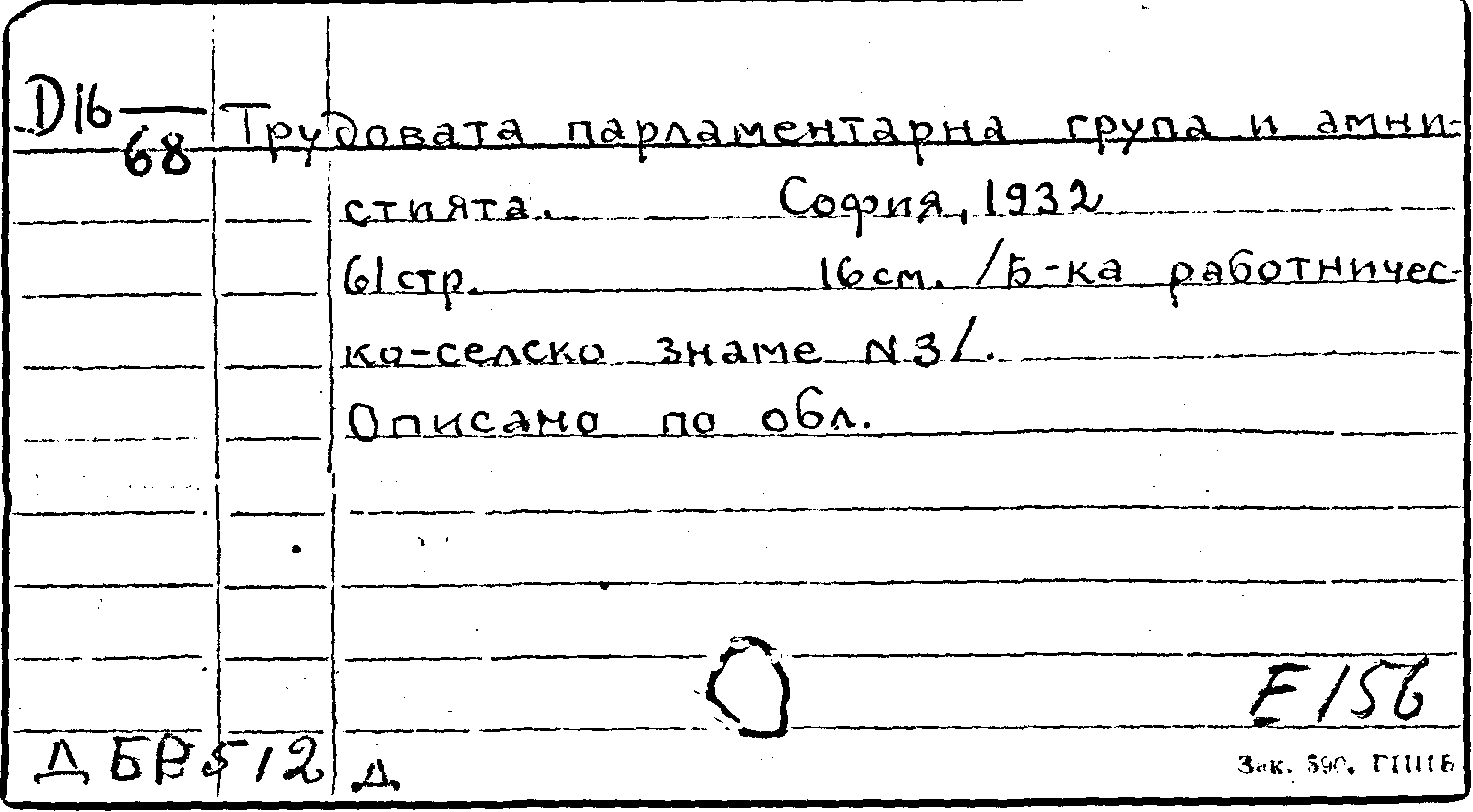 D16
68
Трудовата парламентарна група и амни-
стията. София, 1932
61 стр. 16 см. /Б-ка работничес-
ко-селско знаме N3/.
Описано по обл.
E 156
Д БР 512 Д
Зак. 590.